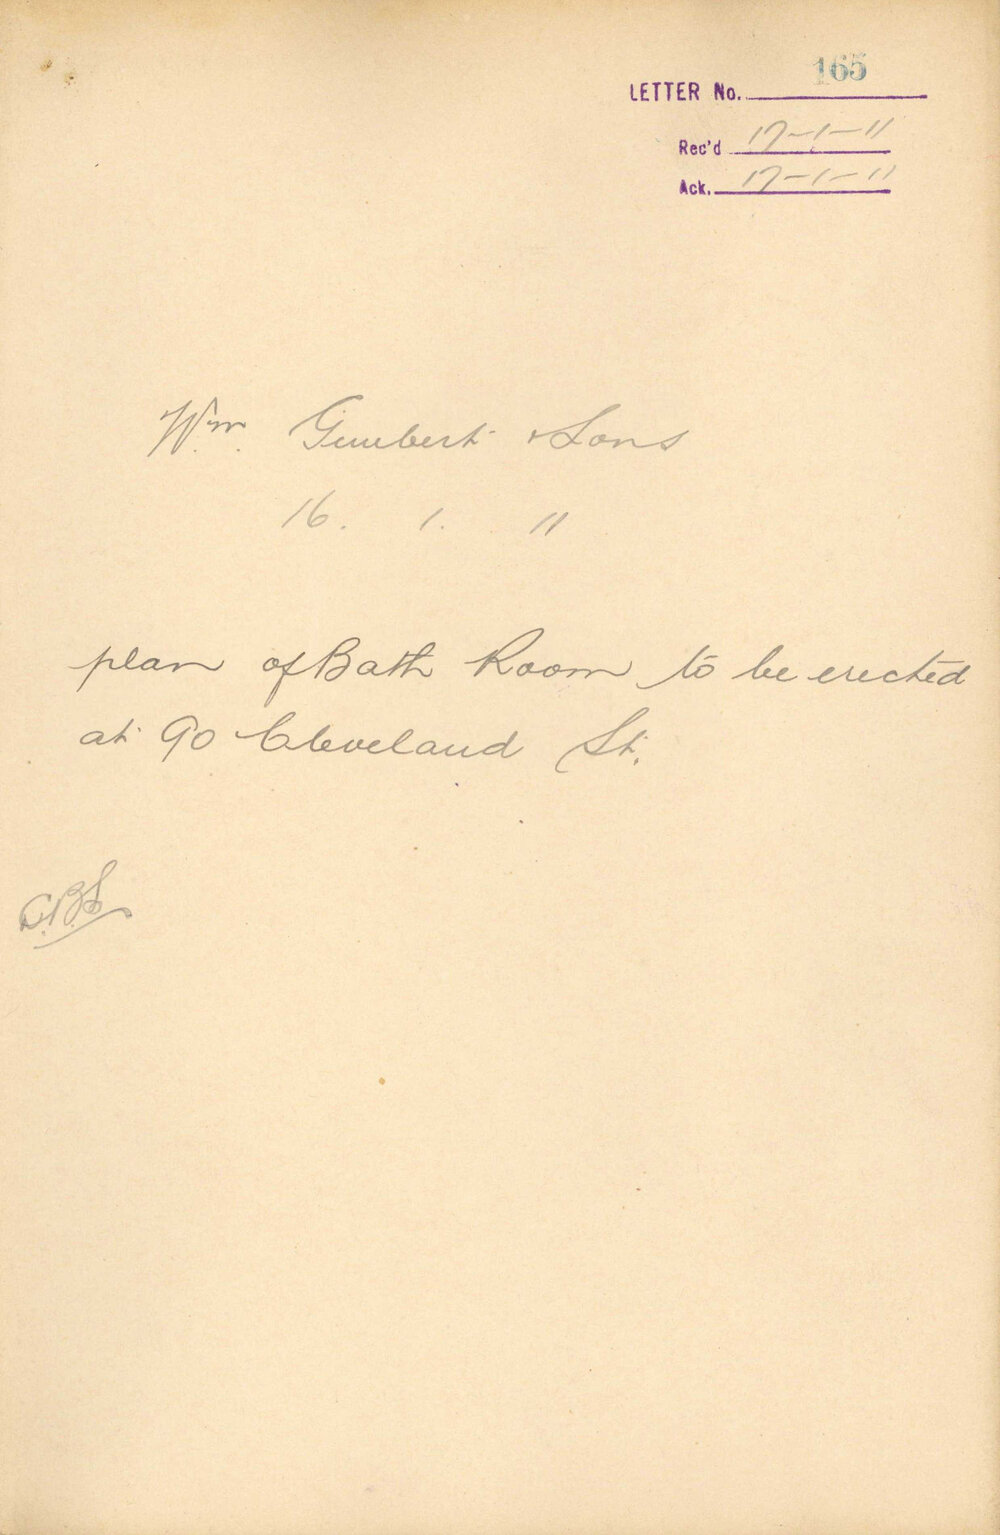 165
LETTER No.
Rec'd 17-1-11
Ack. 17-1-11
Wm. Gumbert & Sons
16. 1. 11
plan of Bath Room to be erected
at 90 Cleveland St.